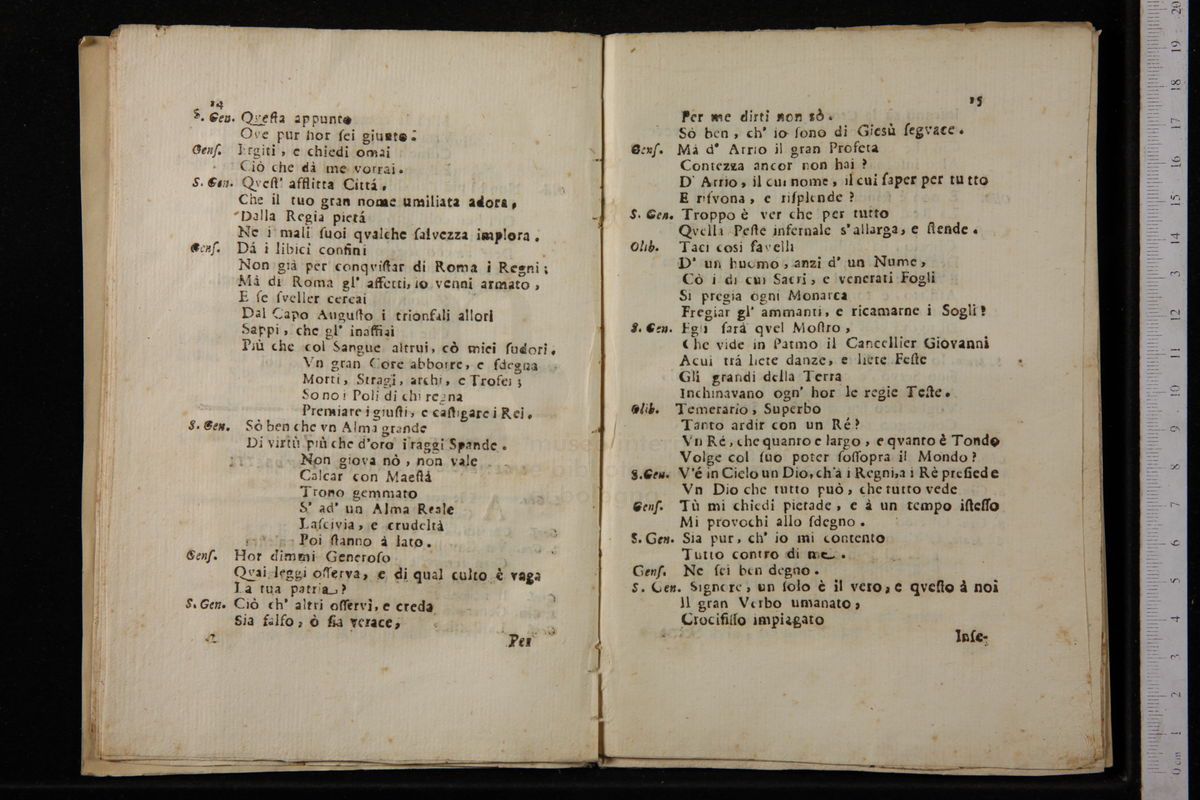 14
S. Gen. Qvesta appunto
Ove pur hor sei giunto.
Gens. Ergiti, e chiedi omai
Ciò che dà me vorrai.
S. Gen. Qvest' afflitta Cittá,
Che il tuo gran nome umiliata adora,
Dalla Regia pietá
Ne i mali suoi qvalche salvezza implora.
Gens. Dá i libici confini
Non già per conqvistar di Roma i Regni;
Mà di Roma gl' affetti, io venni armato,
E se sveller cercai
Dal Capo Augusto i trionfali allori
Sappi, che gl' inaffiai
Più che col Sangue altrui, cò miei sudori.
Vn gran Core abborre, e sdegna
Morti, Stragi, archi, e Trofei;
Sono i Poli di chi regna
Premiare i giusti, e castigare i Rei.
S. Gen. Sò ben che vn Alma grande
Di virtù più che d'oro i raggi Spande.
Non giova nò, non vale
Calcar con Maestá
Trono gemmato
S' ad' un Alma Reale
Lascivia, e crudeltà
Poi stanno à lato.
Gens. Hor dimmi Generoso
Quai leggi osserva, e di qual culto è vaga
La tua patria?
S. Gen. Ciò ch' altri osservi, e creda
Sia falso, ò sia verace,
Per
15
Per me dirti non sò.
Sò ben, ch' io sono di Giesù segvace.
Gens. Mà d' Arrio il gran Profeta
Contezza ancor non hai?
D' Arrio, il cui nome, il cui saper per tutto
E risvona, e risplende?
S. Gen. Troppo è ver che per tutto
Qvella Peste infernale s'allarga, e stende.
Olib. Taci cosi favelli
D' un huomo, anzi d' un Nume,
Cò i di cui Sacri, e venerati Fogli
Si pregia ogni Monarca
Fregiar gl' ammanti, e ricamarne i Sogli!
S. Gen. Egli sarà qvel Mostro,
Che vide in Patmo il Cancellier Giovanni
Acui trá liete danze, e liete Feste
Gli grandi della Terra
Inchinavano ogn' hor le regie Teste.
Olib. Temerario, Superbo
Tanto ardir con un Ré?
Vn Ré, che quanto e largo, e qvanto è Tondo
Volge col suo poter sossopra il Mondo?
S. Gen. V'é in Cielo un Dio, ch'a i Regni, a i Rè presiede
Vn Dio che tutto può, che tutto vede
Gens. Tù mi chiedi pietade, e à un tempo istesso
Mi provochi allo sdegno.
S. Gen. Sia pur, ch' io mi contento
Tutto contro di me.
Gens. Ne sei ben degno.
S. Gen. Signore, un solo è il vero, e qvesto à noi
Il gran Verbo umanato,
Crocifisso impiagato
Inse-